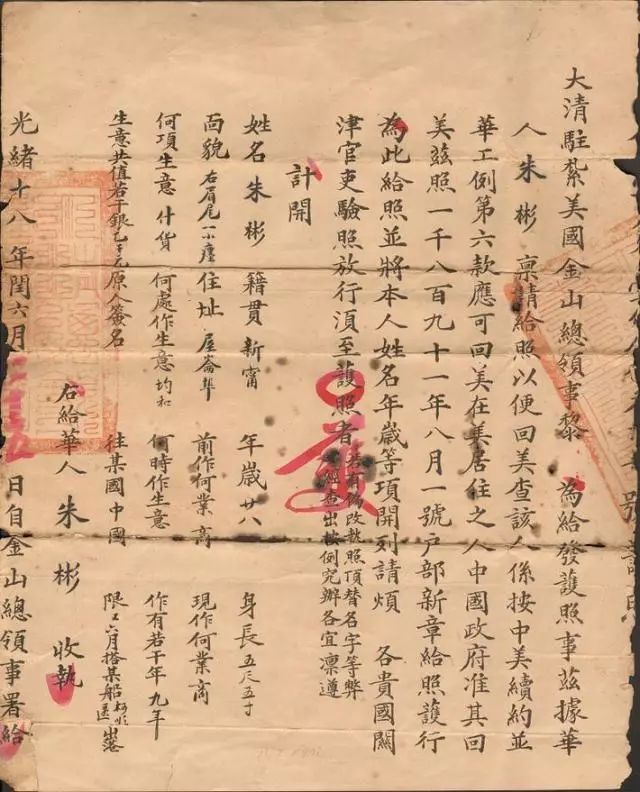 大清駐紮美國金山總領事黎 為給發護照事茲據華
人朱彬稟請給照以便回美查該人係按中美續約並
華工例第六款應可回美在美居住之人中國政府准其回
美茲照一千八百九十一年八月一號戶部新章給照護行
為此給照並將本人姓名年歲等項開列請煩 各貴國關
津官吏驗照放行須至護照者
若有偽改執照頂替名字等弊
經查出按例究辦各宜凜遵
計開
姓名朱彬 籍貫新甯 年歲廿八 身長五尺五寸
面貌右眉尾一小 住址 前作何業商 現作何業商
何項生意什貨 何處作生意均和 何時作生意 作有若干年九年
生意共值若干銀 元原人簽名 往某國中國 限 六月搭某船 出港
右給華人朱彬收執
光緒十八年閏六月 日自金山總領事署給